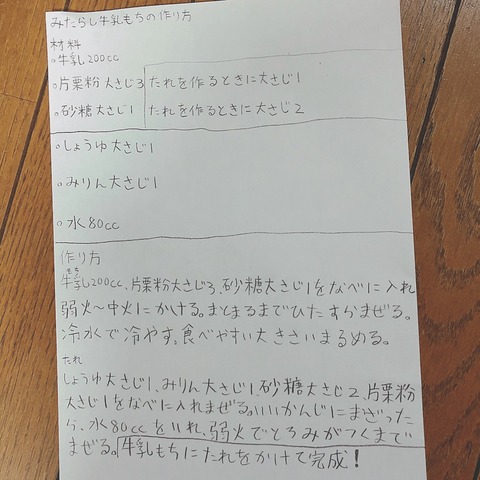 みたらし牛乳もちの作り方
材料
○牛乳200cc
○片栗粉 大さじ3 たれを作るときに大さじ1
○砂糖大さじ1 たれを作るときに大さじ2
○しょうゆ大さじ1
○みりん大さじ1
○水80cc
作り方
もち
牛乳200cc、片栗粉大さじ3、砂糖大さじ1をなべに入れ
弱火〜中火にかける。まとまるまでひたすらまぜる。
冷水で冷やす。食べやすい大きさいまるめる。
たれ
しょうゆ大さじ1、みりん大さじ1、砂糖大さじ2、片栗粉
大さじ1をなべに入れまぜる。いいかんじにまざった
ら、水80ccをいれ、弱火でとろみがつくまで
まぜる。牛乳もちにたれをかけて完成！